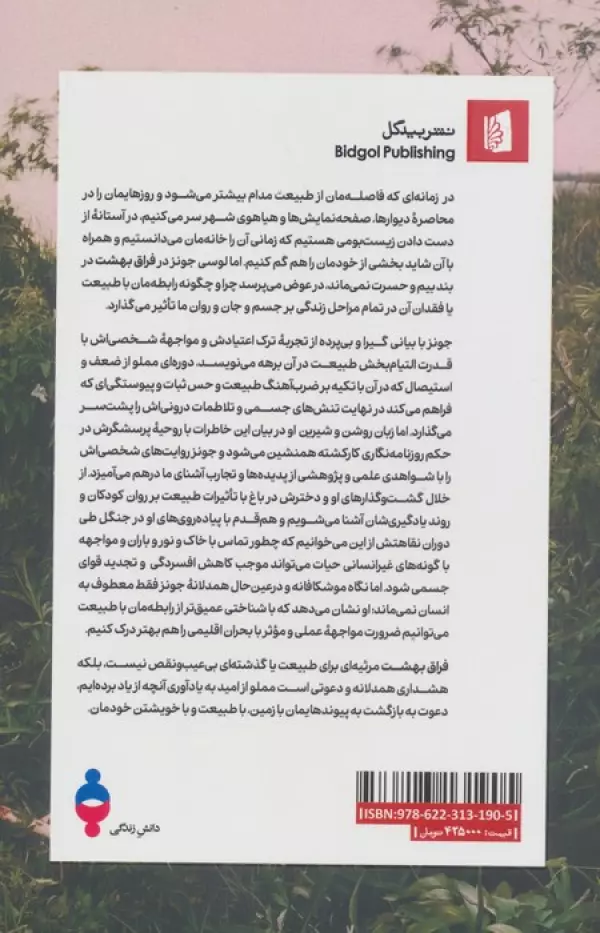 نشر بیدگل
Bidgol Publishing
در زمانه‌ای که فاصله‌مان از طبیعت مدام بیشتر می‌شود و روزهایمان را در
محاصرهٔ دیوارها، صفحه‌نمایش‌ها و هیاهوی شهر سر می‌کنیم، در آستانهٔ از
دست دادن زیست‌بومی هستیم که زمانی آن را خانه‌مان می‌دانستیم و همراه
با آن شاید بخشی از خودمان را هم گم کنیم. اما لوسی جونز در فراق بهشت در
بند بیم و حسرت نمی‌ماند، در عوض می‌پرسد چرا و چگونه رابطه‌مان با طبیعت
یا فقدان آن در تمام مراحل زندگی بر جسم و جان و روان ما تأثیر می‌گذارد.
جونز با بیانی گیرا و بی‌پرده از تجربهٔ ترک اعتیادش و مواجههٔ شخصی‌اش با
قدرت التیام‌بخش طبیعت در آن برهه می‌نویسد، دوره‌ای مملو از ضعف و
استیصال که در آن با تکیه بر ضرب‌آهنگ طبیعت و حس ثبات و پیوستگی‌ای که
فراهم می‌کند در نهایت تنش‌های جسمی و تلاطمات درونی‌اش را پشت‌سر
می‌گذارد. اما زبان روشن و شیرین او در بیان این خاطرات با روحیهٔ پرسشگرش در
حکم روزنامه‌نگاری کارکشته همنشین می‌شود و جونز روایت‌های شخصی‌اش
را با شواهدی علمی و پژوهشی از پدیده‌ها و تجارب آشنای ما درهم می‌آمیزد. از
خلال گشت‌وگذارهای او و دخترش در باغ با تأثیرات طبیعت بر روان کودکان و
روند یادگیری‌شان آشنا می‌شویم و هم‌قدم با پیاده‌روی‌های او در جنگل طی
دوران نقاهتش از این می‌خوانیم که چطور تماس با خاک و نور و باران و مواجهه
با گونه‌های غیرانسانی حیات می‌تواند موجب کاهش افسردگی و تجدید قوای
جسمی شود. اما نگاه موشکافانه و درعین‌حال همدلانهٔ جونز فقط معطوف به
انسان نمی‌ماند؛ او نشان می‌دهد که با شناختی عمیق‌تر از رابطه‌مان با طبیعت
می‌توانیم ضرورت مواجههٔ عملی و مؤثر با بحران اقلیمی را هم بهتر درک کنیم.
فراق بهشت مرثیه‌ای برای طبیعت یا گذشته‌ای بی‌عیب‌ونقص نیست، بلکه
هشداری همدلانه و دعوتی است مملو از امید به یادآوری آنچه از یاد برده‌ایم،
دعوت به بازگشت به پیوندهایمان با زمین، با طبیعت و با خویشتن خودمان.
دانش زندگی
ISBN:978-622-313-190-5
قیمت: ۴۲۵۰۰۰ تومان